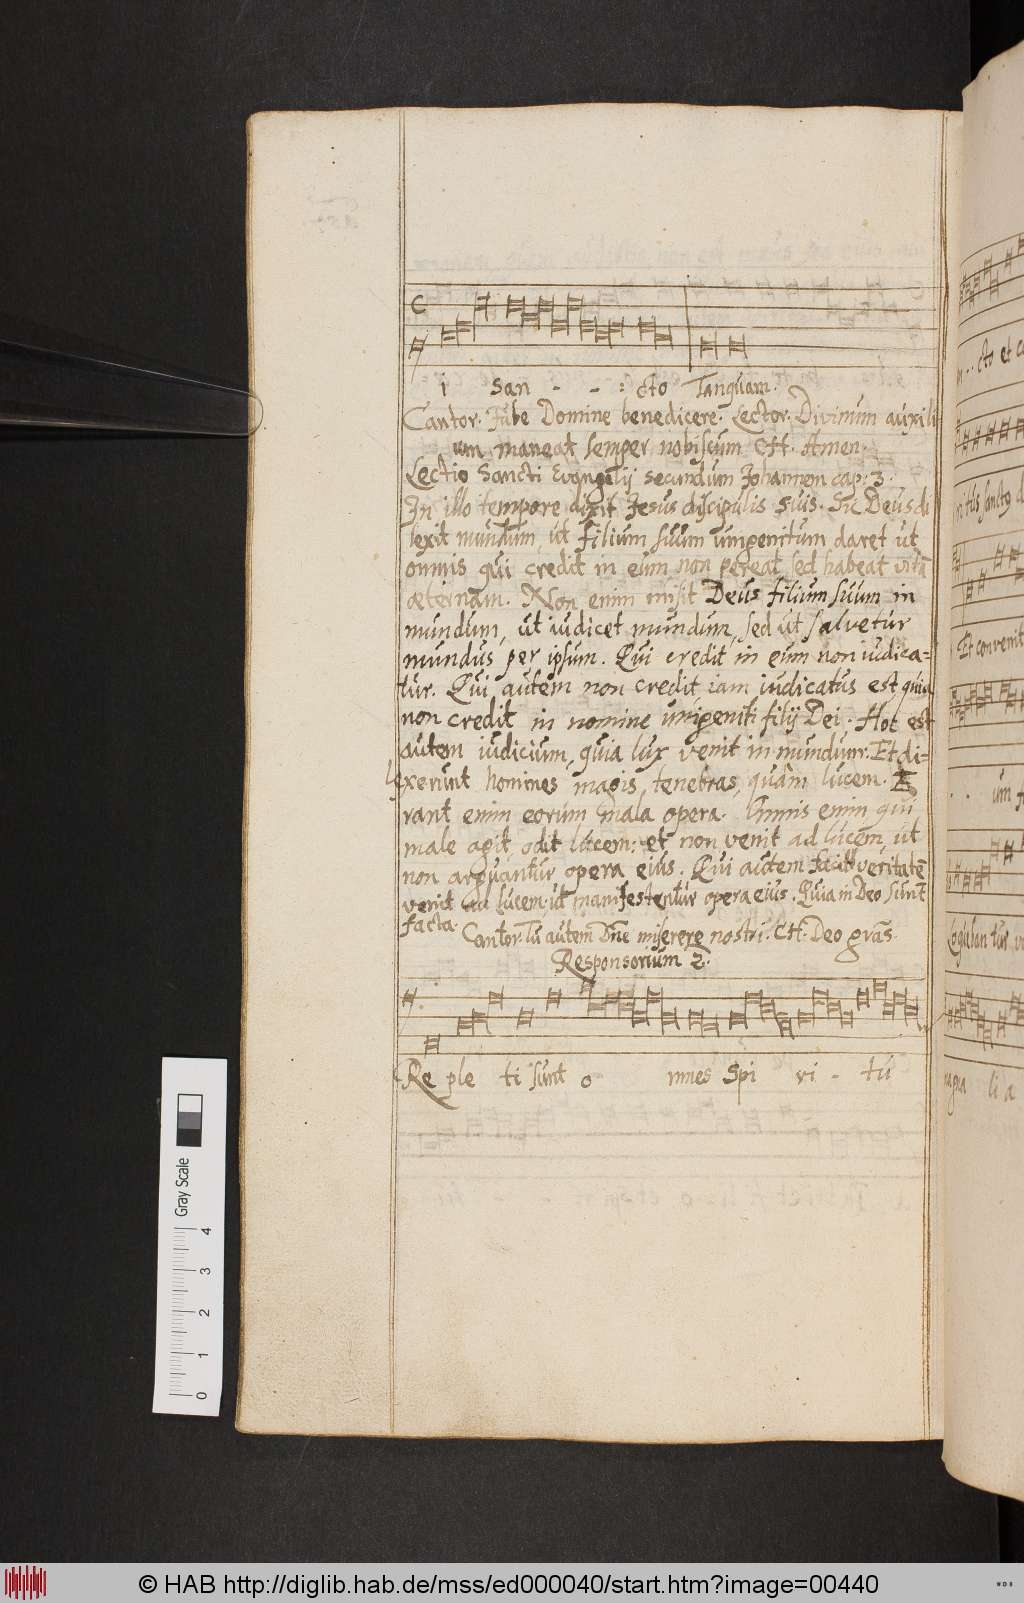 i San - - : cto Tanquam.
Cantor. Jube Domine benedicere. Lector. Divinum auxili
um maneat semper nobiscum CH. Amen.
Lectio Sancti Evangelij secundum Johannem cap: 3.
In illo tempore dixit Jesus discipulis suis. Sic Deus di
lexit mundum, ut filium suum unigenitum daret ut
omnis qui credit in eum non pereat sed habeat vitā
æternam. Non enim misit Deus filium suum in
mundum, ut iudicet mundum, sed ut salvetur
mundus per ipsum. Qui credit in eum non iudica=
tur. Qui autem non credit iam iudicatus est quia
non credit in nomine unigeniti filij Dei. Hoc est
autem iudicium, quia lux venit in mundum: Et di-
lexerunt homines magis, tenebras, quàm lucem. E
rant enim eorum mala opera. Omnis enim qui
male agit, odit lucem: et non venit ad lucem, ut
non arguantur opera eius. Qui autem facit veritatē
venit ad lucem, ut manifestentur opera eius. Quia in Deo sunt
facta. Cantor. Tu autem Dn̄e miserere nostri. CH. Deo grās.
Responsorium 2.
Re ple ti sunt o mnes Spi ri - tu
cto et
ritus sancto
Et convenit
um
loquebantur
magna li a
Gray Scale
4
3
2
1
0
© HAB http://diglib.hab.de/mss/ed000040/start.htm?image=00440
WDB